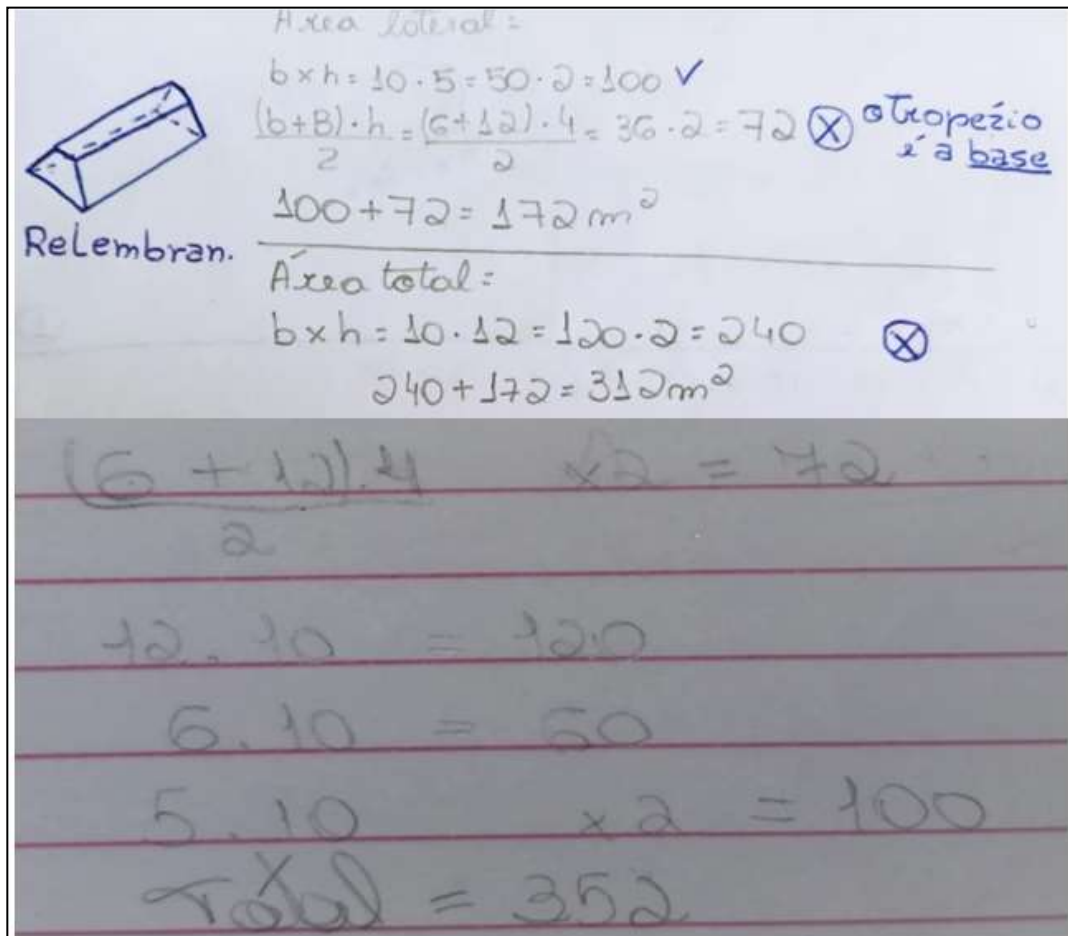 Área lateral =
b x h = 10 · 5 = 50 · 2 = 100 ✓
(b+B) · h / 2 = (6+12) · 4 / 2 = 36 · 2 = 72 ⓧ o Tropézio
é a base
100 + 72 = 172 m²
Relembran.
Área total =
b x h = 10 · 12 = 120 · 2 = 240 ⓧ
240 + 172 = 312 m²
(6 + 12) . 4 / 2 x 2 = 72
12 . 10 = 120
6 . 10 = 60
5 . 10 x 2 = 100
Total = 352